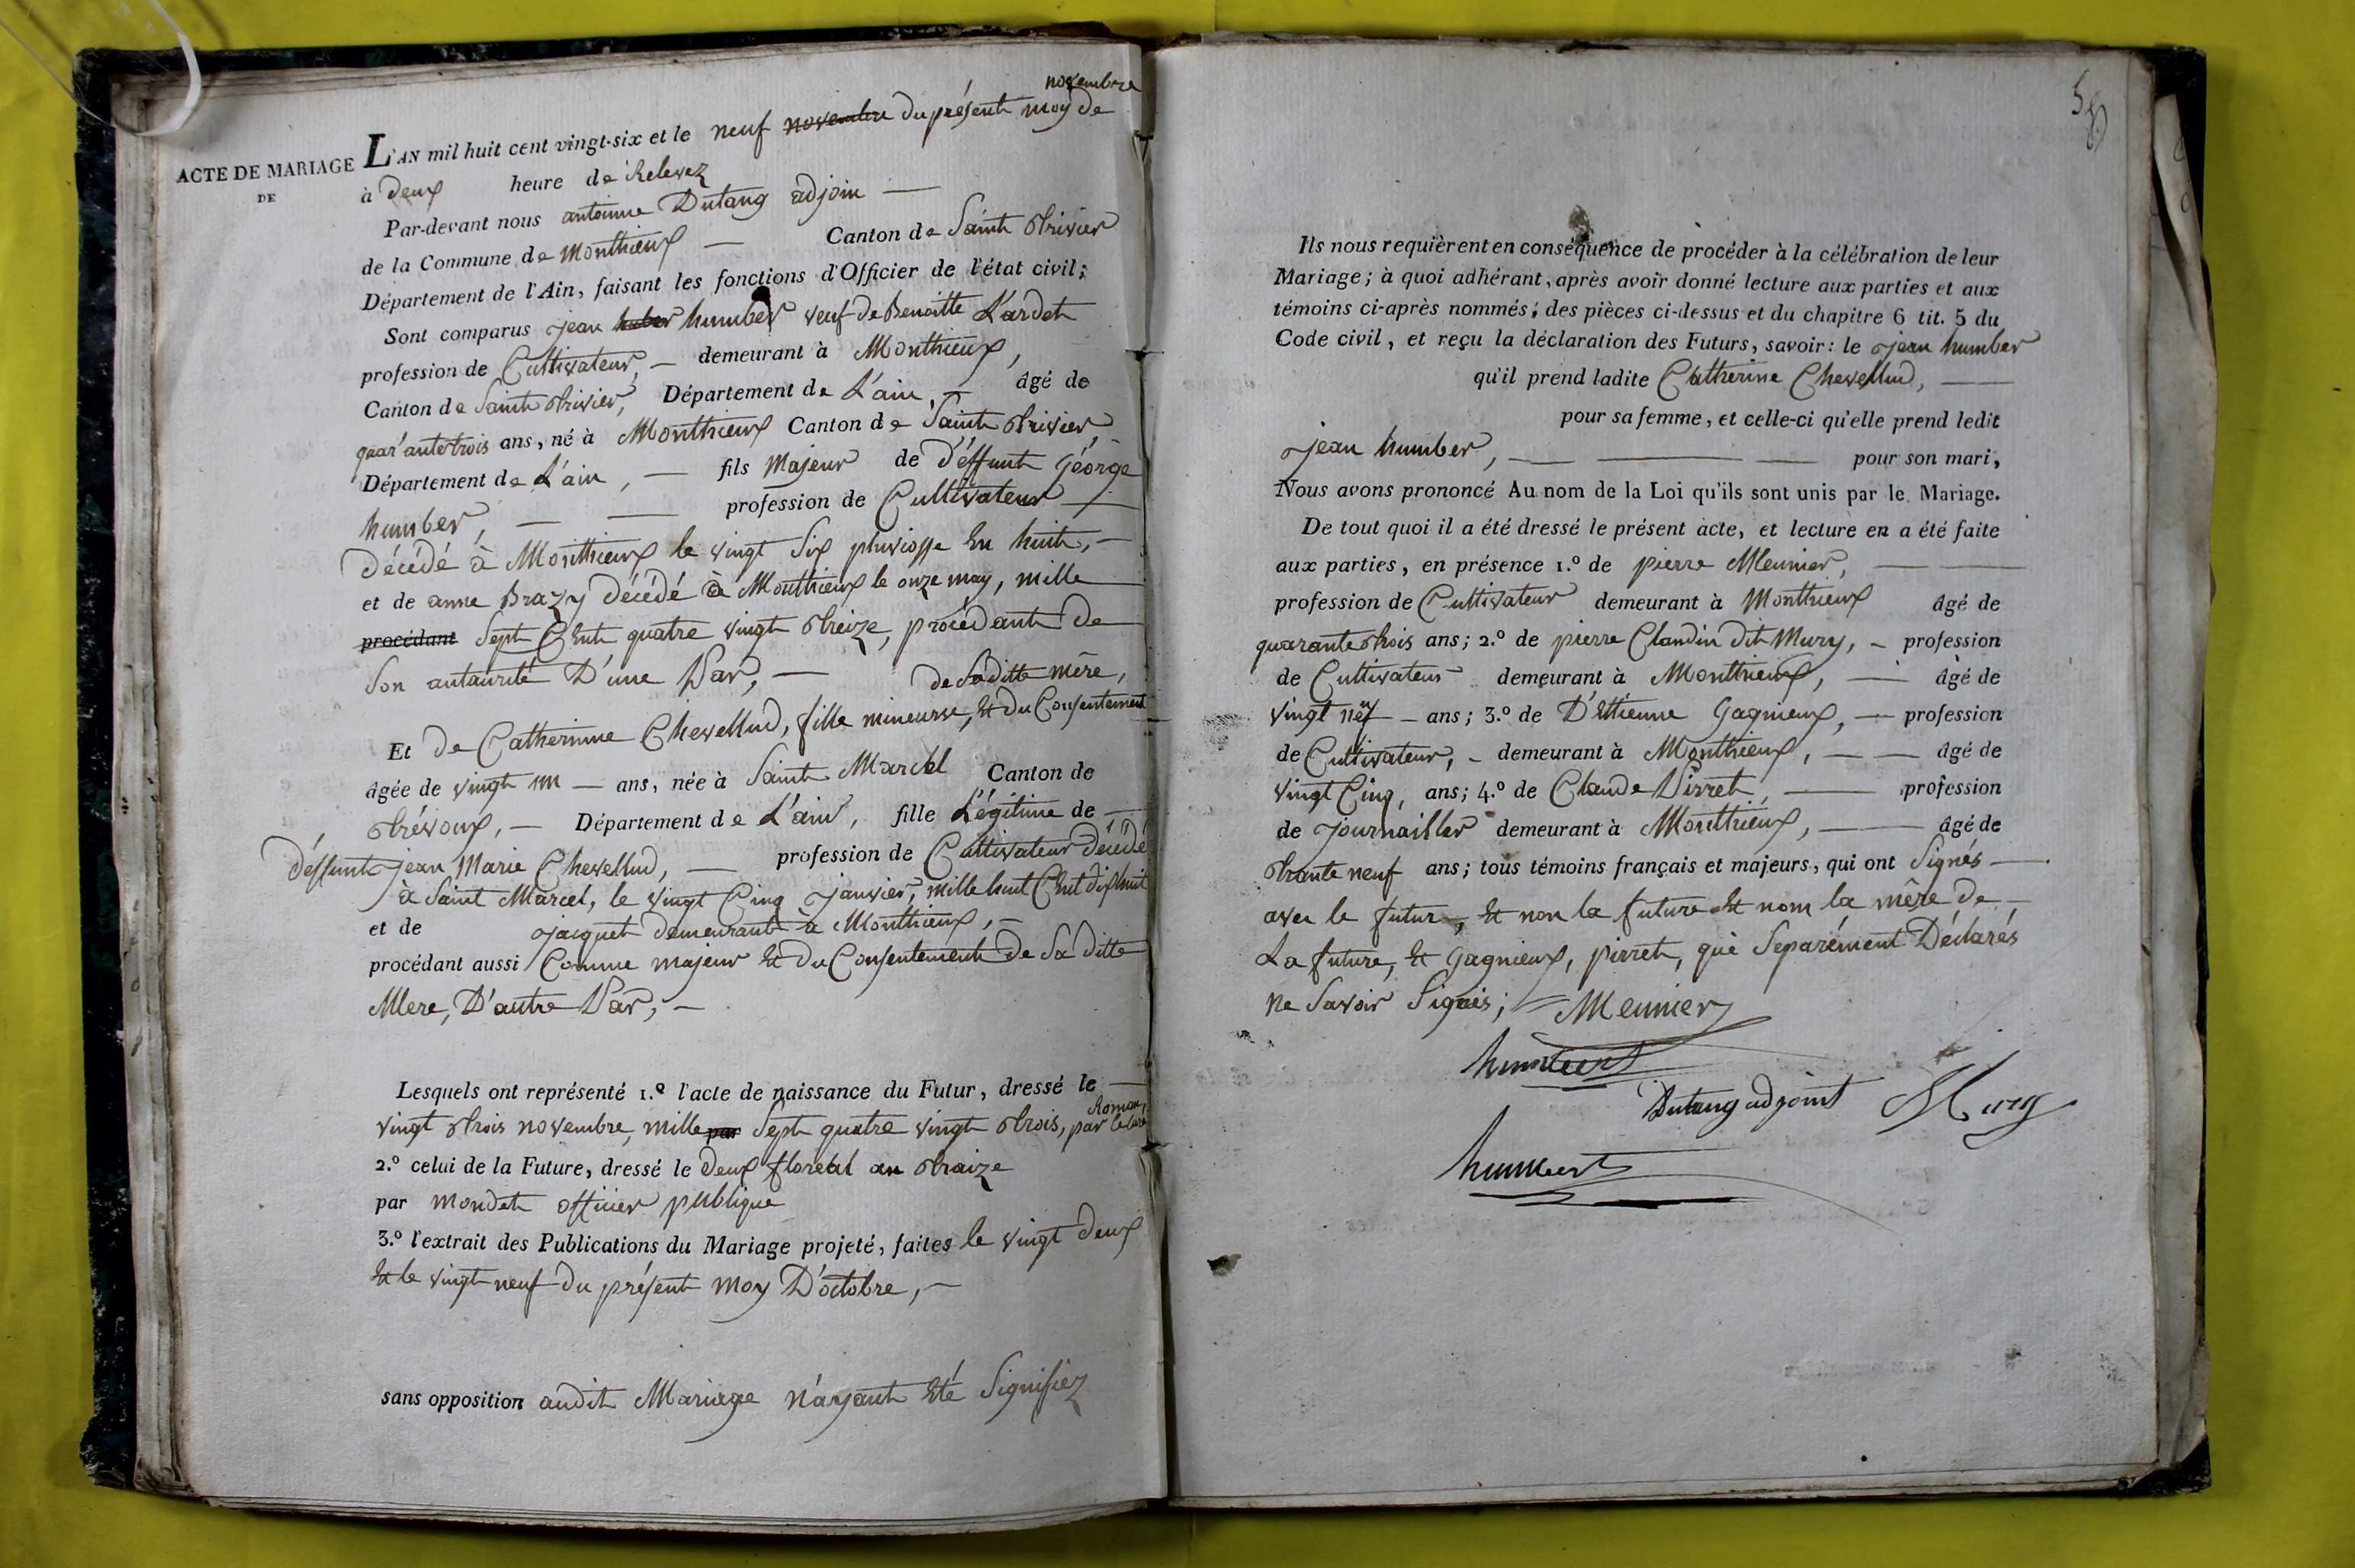 novembre
L'AN mil huit cent vingt-six et le neuf novembre du présent moy de
ACTE DE MARIAGE
DE
à deux heure de Relevez
Par-devant nous antoinne Dutang adjoin —
de la Commune de Monthieux — Canton de Saint trivier
Département de l'Ain, faisant les fonctions d'Officier de l'état civil;
Sont comparus jean huber humber veuf de Benoitte Lardet
profession de Cultivateur, — demeurant à Monthieux,
Canton de Saint trivier, Département de L'ain, — âgé de
quar'antetrois ans, né à Monthieux Canton de Saint trivier,
Département de L'ain, — fils Majeur de d'éffunt Géorge
humber, — — profession de Cultivateur —
décédé à Monthieux le vingt Six pluviosse En huit, —
et de anne Brazy décédé à Monthieux le onze may, mille
procédant Sept Cent quatre vingt treize, procédant de
Son autaurité D'une Par, — de Saditte mère,
Et de Catherinne Chevellud, fille mineurse, Et du Consentement
âgée de vingt un — ans, née à Saint Marcel Canton de
trévoux, — Département de L'ain, fille Légitime de —
d'éffunt jean Marie Chevellud, — profession de Cultivateur décédé
à Saint Marcel, le vingt Cinq janvier, mille huit Cent dix huit
et de jacquet demeurant à Monthieux, —
procédant aussi Comme majeur Et du Consentement de Sa ditte
Mere, D'autre Par, —
Lesquels ont représenté 1.º l'acte de naissance du Futur, dressé le —
Roman,
vingt trois novembre, mille par Sept quatre vingt trois, par le
2.º celui de la Future, dressé le deux floréal an traize
par mondet officier publique
3.º l'extrait des Publications du Mariage projeté, faites le vingt deux
Et le vingt neuf du présent moy D'octobre, —
sans opposition audit Mariage n'ayant Eté Signifiez
58
Ils nous requièrent en conséquence de procéder à la célébration de leur
Mariage; à quoi adhérant, après avoir donné lecture aux parties et aux
témoins ci-après nommés; des pièces ci-dessus et du chapitre 6 tit. 5 du
Code civil, et reçu la déclaration des Futurs, savoir: le jean humber
qu'il prend ladite Catherine Chevellud, —
pour sa femme, et celle-ci qu'elle prend ledit
jean humber, — — — pour son mari,
Nous avons prononcé Au nom de la Loi qu'ils sont unis par le Mariage.
De tout quoi il a été dressé le présent acte, et lecture en a été faite
aux parties, en présence 1.º de pierre Meunier, — —
profession de Cultivateur demeurant à Monthieux âgé de
quarante trois ans; 2.º de pierre Claudin dit Mury, — profession
de Cultivateur demeurant à Monthieux, — âgé de
vingt neuf — ans; 3.º de D'Ettienne Gagnieux, — profession
de Cultivateur, — demeurant à Monthieux, — — âgé de
vingt Cinq, ans; 4.º de Claude Pirret, — profession
de journallier demeurant à Monthieux, — âgé de
trante neuf ans; tous témoins français et majeurs, qui ont Signés —
avec le futur, Et non la future Et nom la mère de —
La future, Et Gagnieux, pirret, qui Separément Déclarés
ne Savoir Signés; = Meunier
humbert
Dutang adjoint Mury
humbert